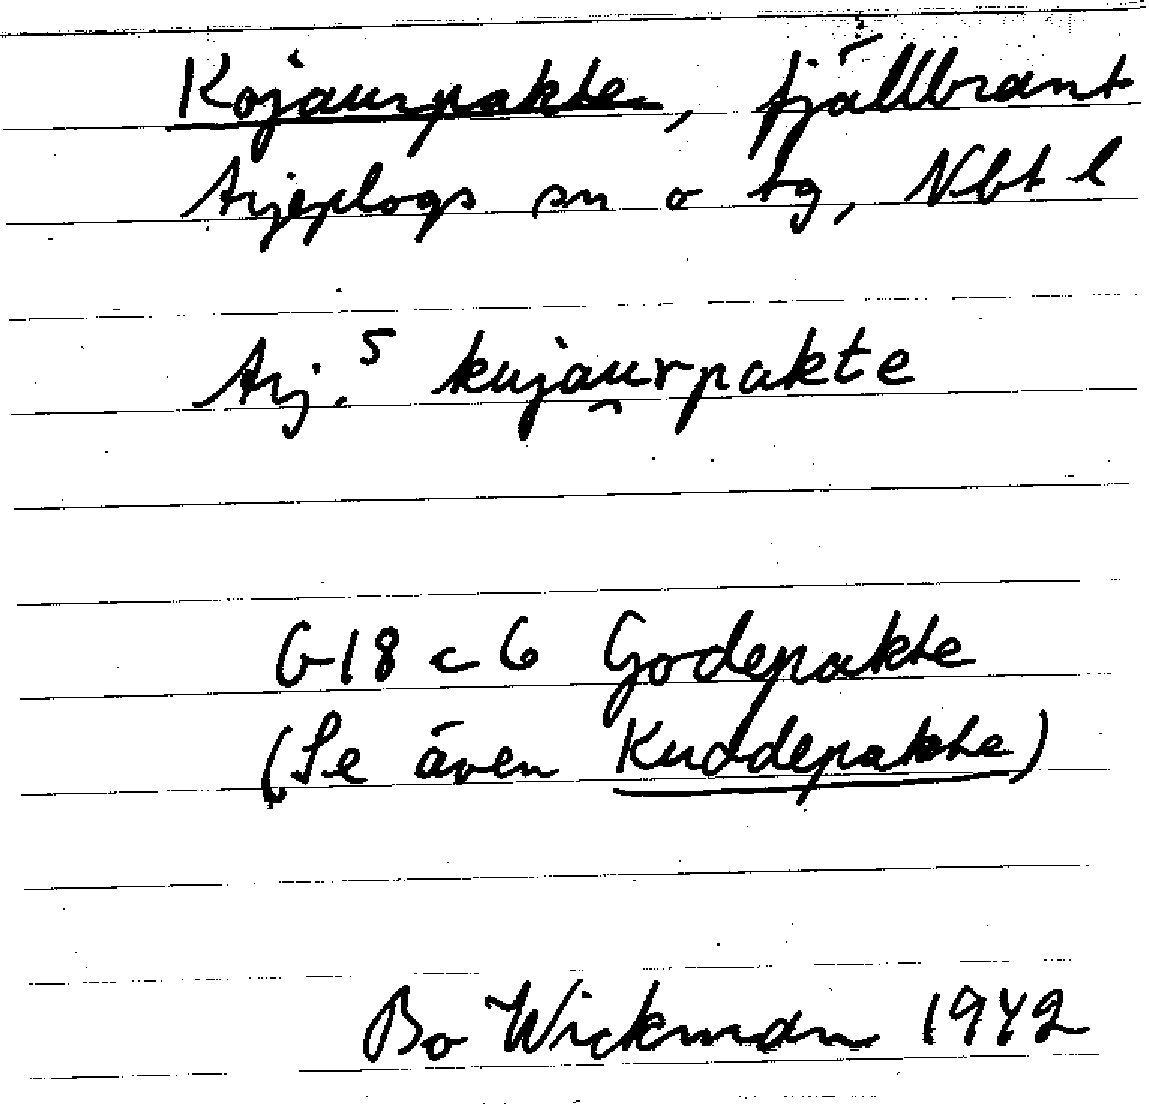 Kojaurpakte, fjällbrant
Arjeplogs sn o tg, Nbt l
Arj.⁵ kujau̯rpakte
G18 c 6 Godepakte
(Se även Kuddepakte)
Bo Wickman 1942